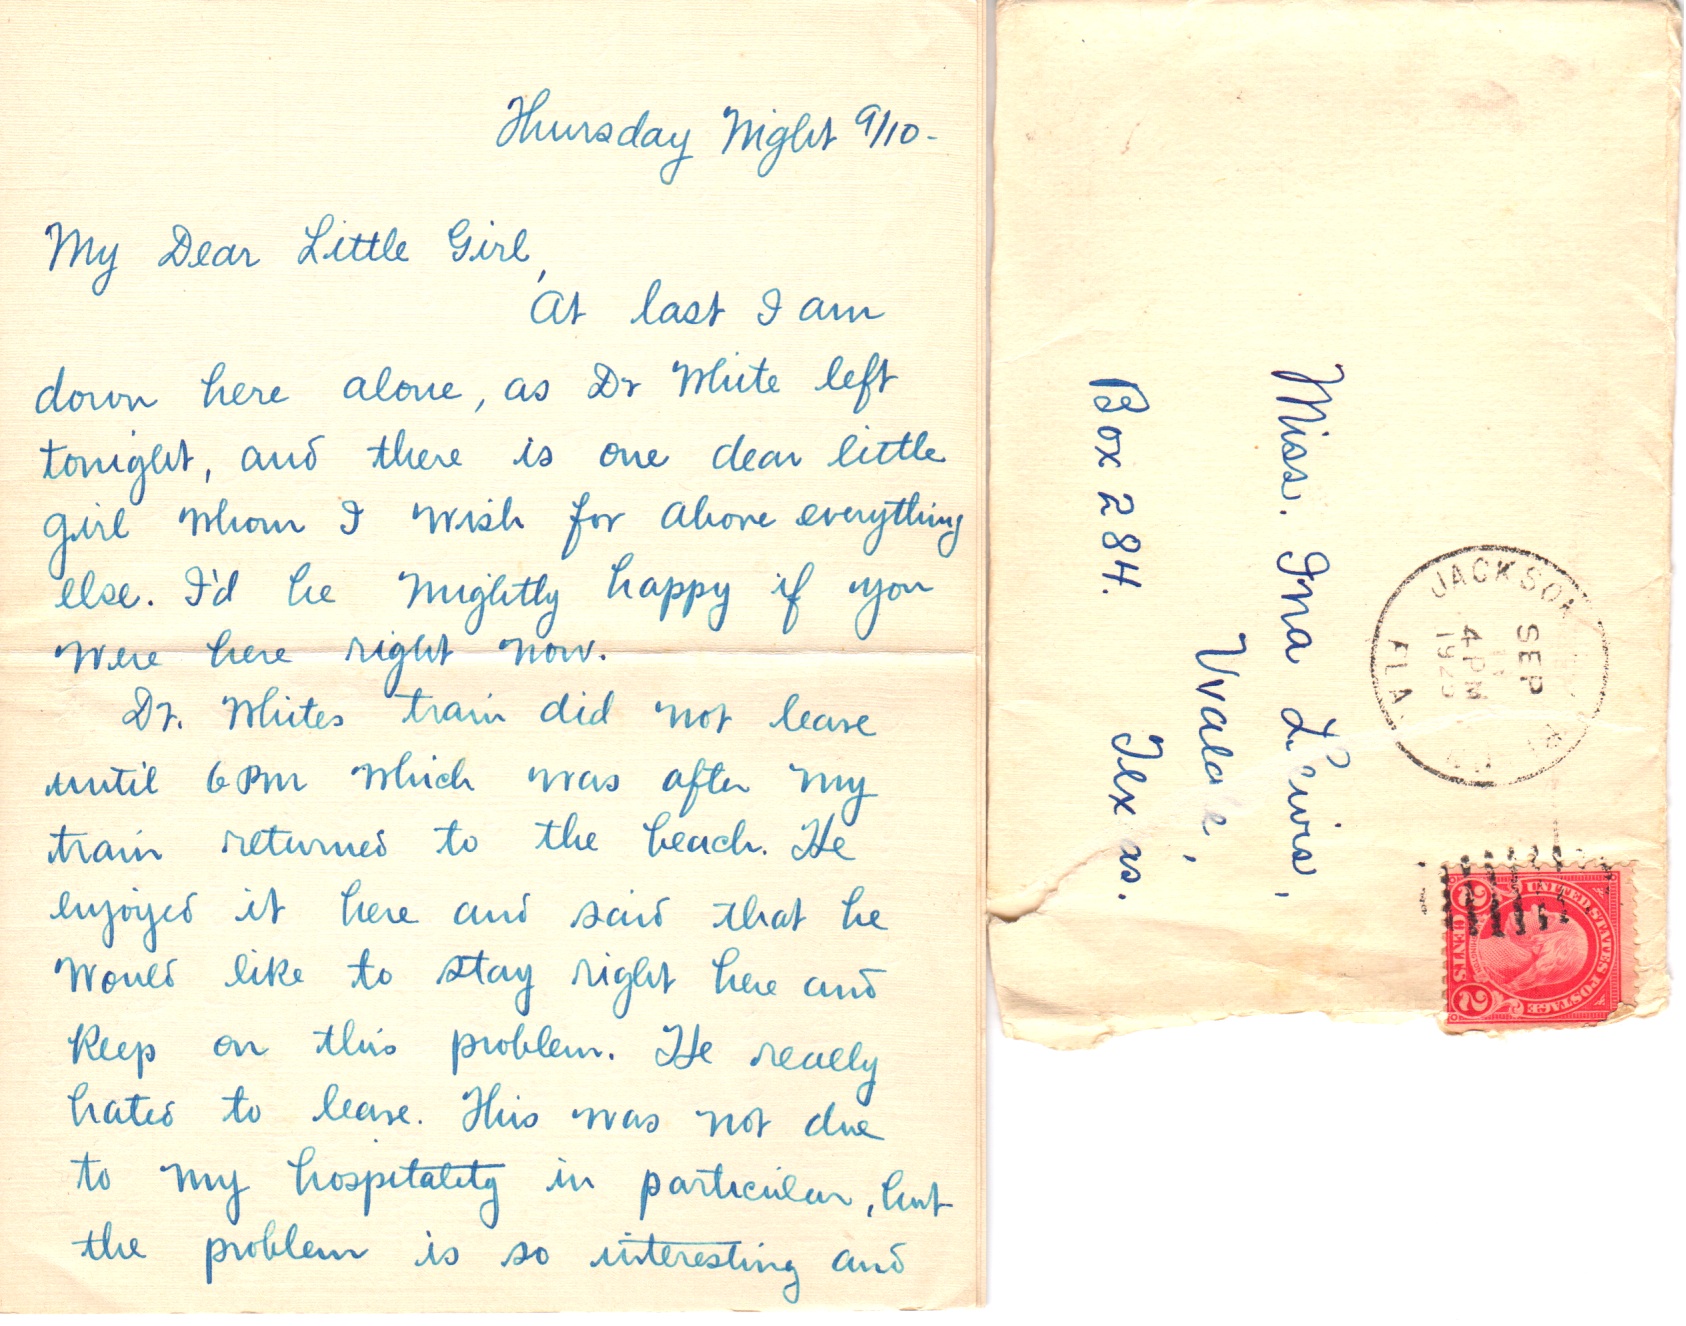 Thursday Night 9/10-
My Dear Little Girl,
At last I am
down here alone, as Dr White left
tonight, and there is one dear little
girl whom I wish for above everything
else. I'd be mightly happy if you
were here right now.
Dr. Whites train did not leave
until 6 PM which was after my
train returned to the beach. He
enjoyed it here and said that he
would like to stay right here and
keep on this problem. He really
hated to leave. This was not due
to my hospitality in particular, but
the problem is so interesting and
Miss. Ina Lewis,
Uvalde,
Box 284. Texas.
JACKSON
SEP
4 PM
1925
FLA
UNITED STATES POSTAGE
2 CENTS 2